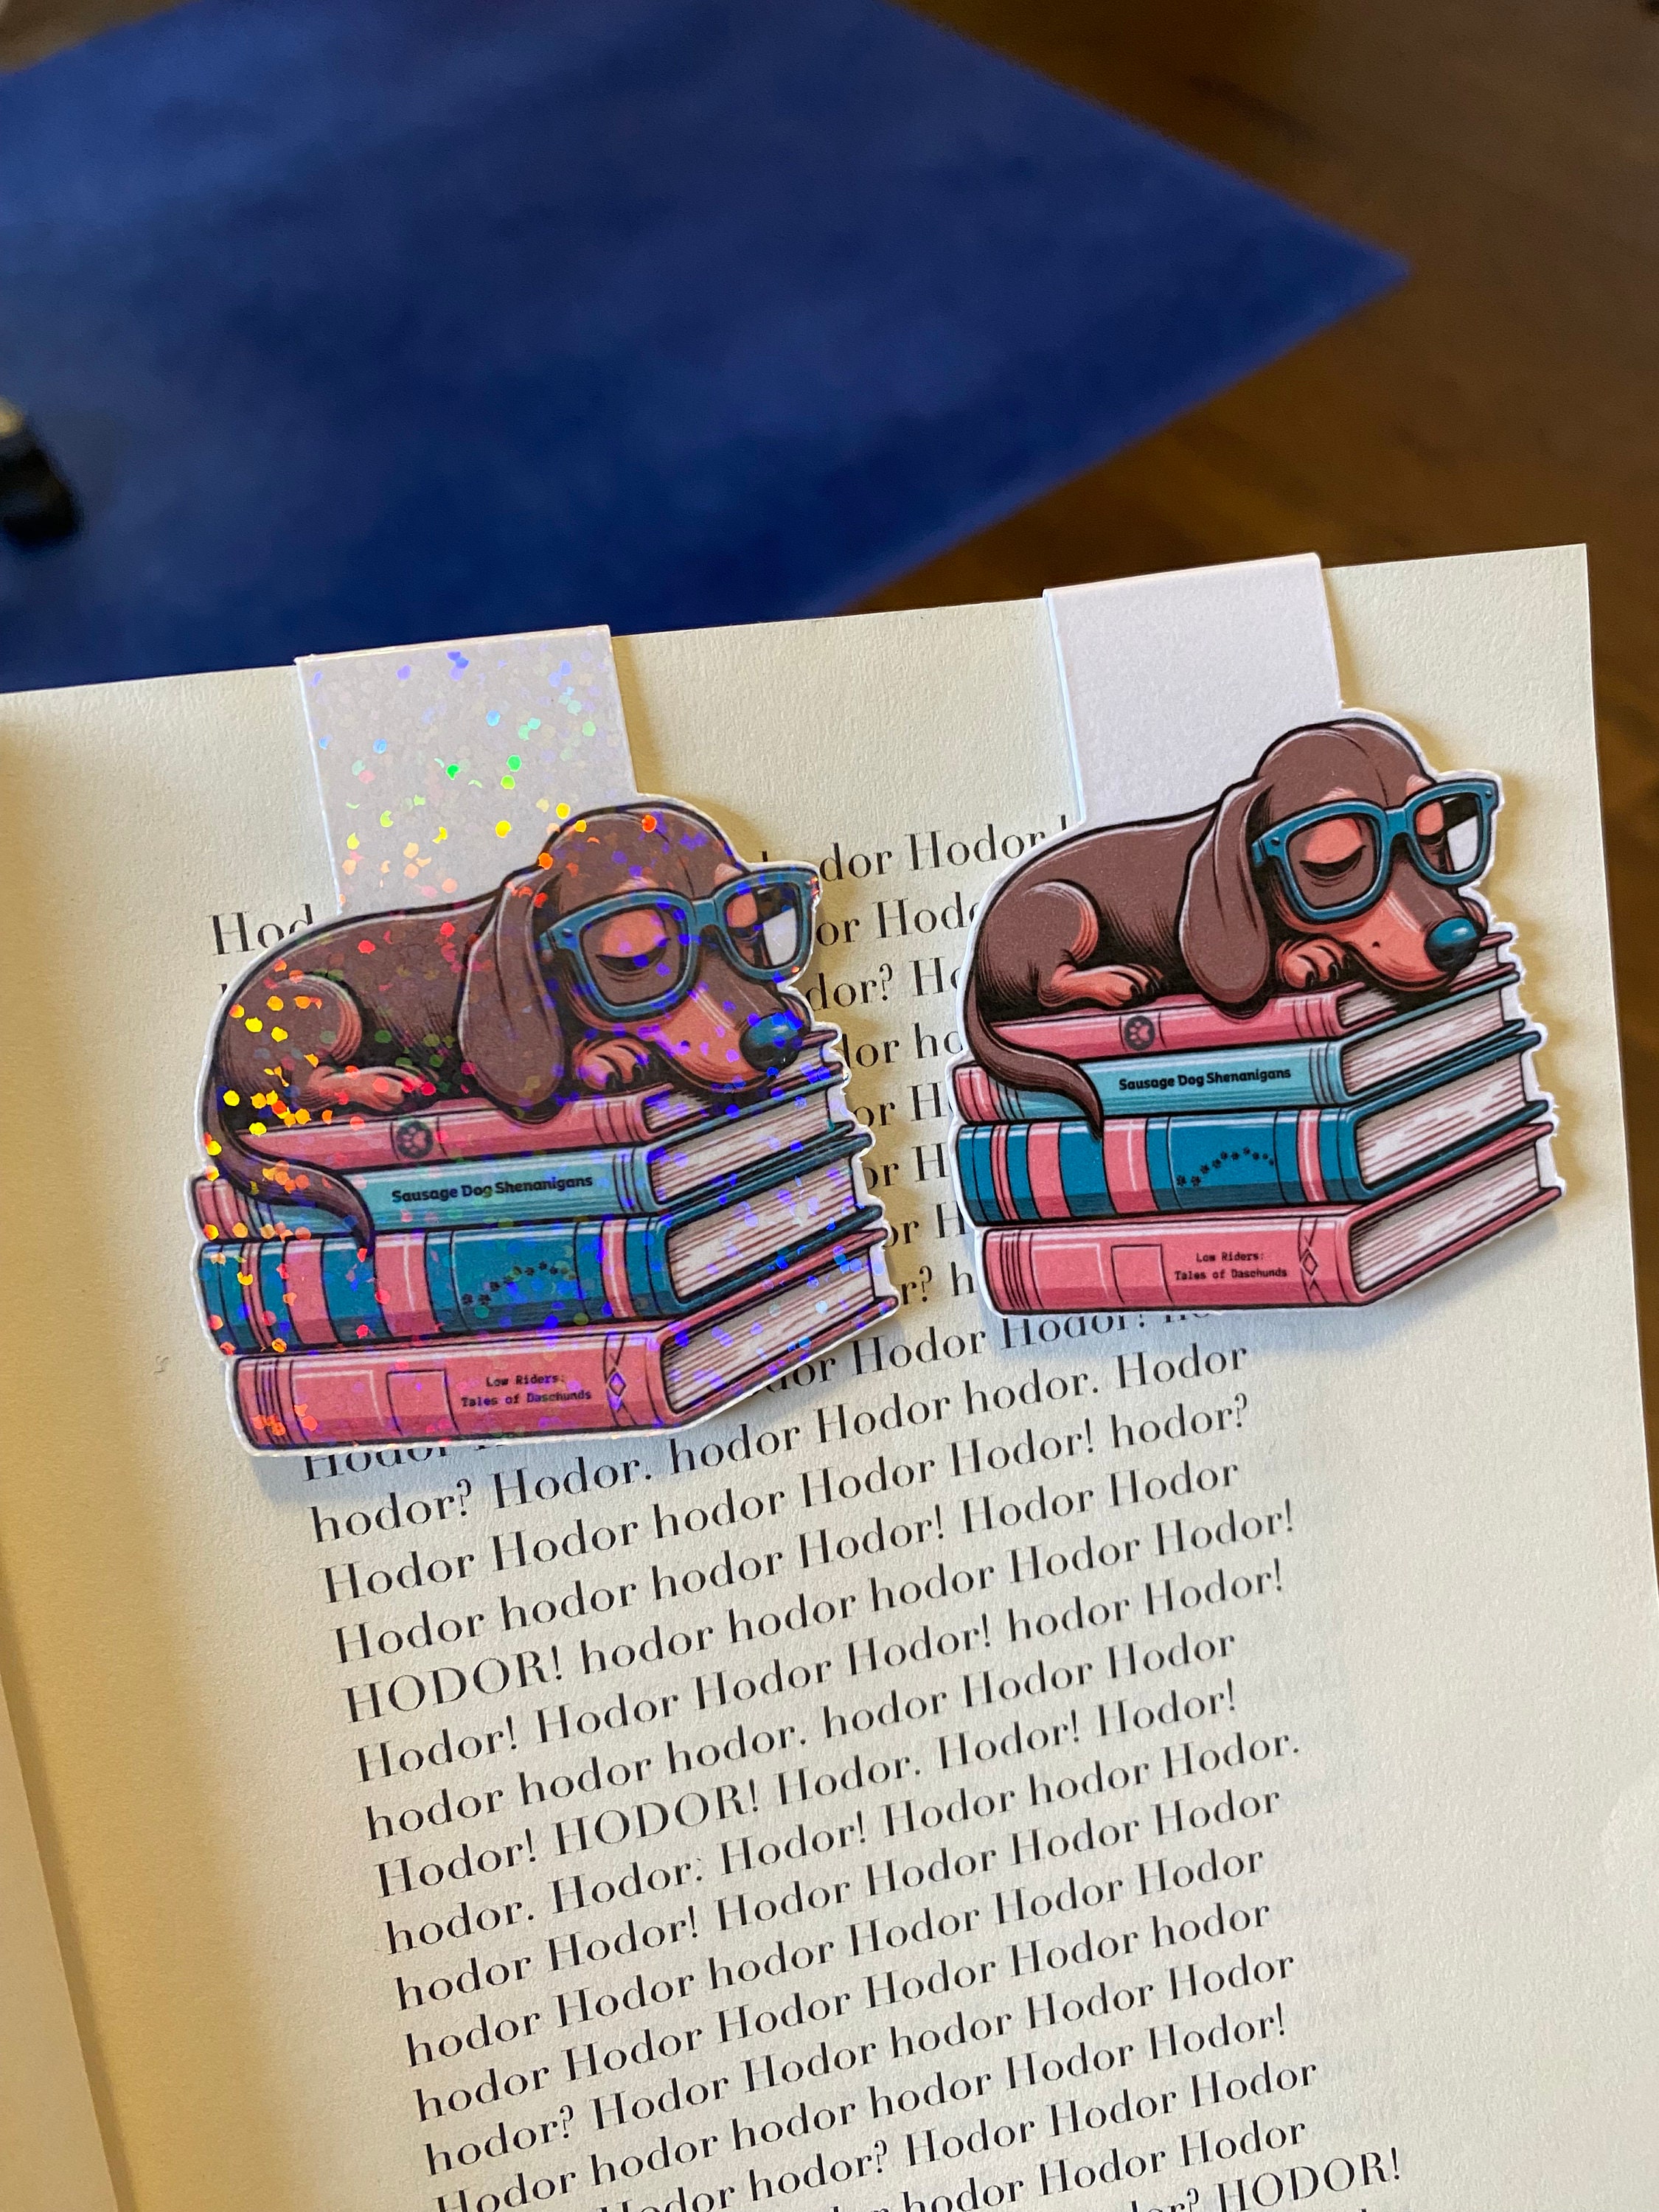 Sausage Dog Shenanigans
Low Riders:
Tales of Daschunds
Sausage Dog Shenanigans
Low Riders:
Tales of Daschunds
Hodor
Hodor Hodor Hodor!
hodor? Hodor. hodor Hodor hodor. Hodor
Hodor Hodor hodor Hodor Hodor! hodor?
Hodor hodor hodor Hodor! Hodor Hodor
HODOR! hodor hodor hodor Hodor Hodor!
Hodor! Hodor Hodor Hodor! hodor Hodor!
hodor hodor hodor. hodor Hodor Hodor
Hodor! HODOR! Hodor. Hodor! Hodor!
hodor. Hodor. Hodor! Hodor hodor Hodor.
hodor Hodor! Hodor Hodor Hodor Hodor
hodor Hodor hodor Hodor Hodor Hodor
hodor Hodor Hodor Hodor Hodor hodor
hodor? Hodor Hodor hodor Hodor Hodor
Hodor hodor hodor hodor Hodor Hodor!
Hodor hodor? Hodor Hodor Hodor
hodor Hodor Hodor
HODOR!